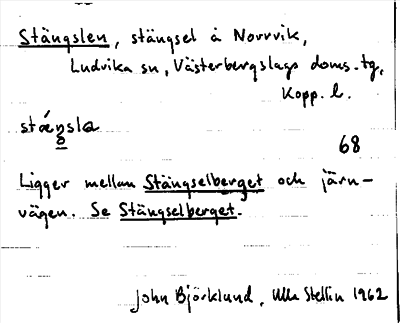 Stängslen, stängsel å Norrvik,
Ludvika sn, Västerbergslags doms. tg,
Kopp. l.
stǽŋsla
68
Ligger mellan Stängselberget och järn-
vägen. Se Stängselberget.
John Björklund, Ulla Stellin 1962